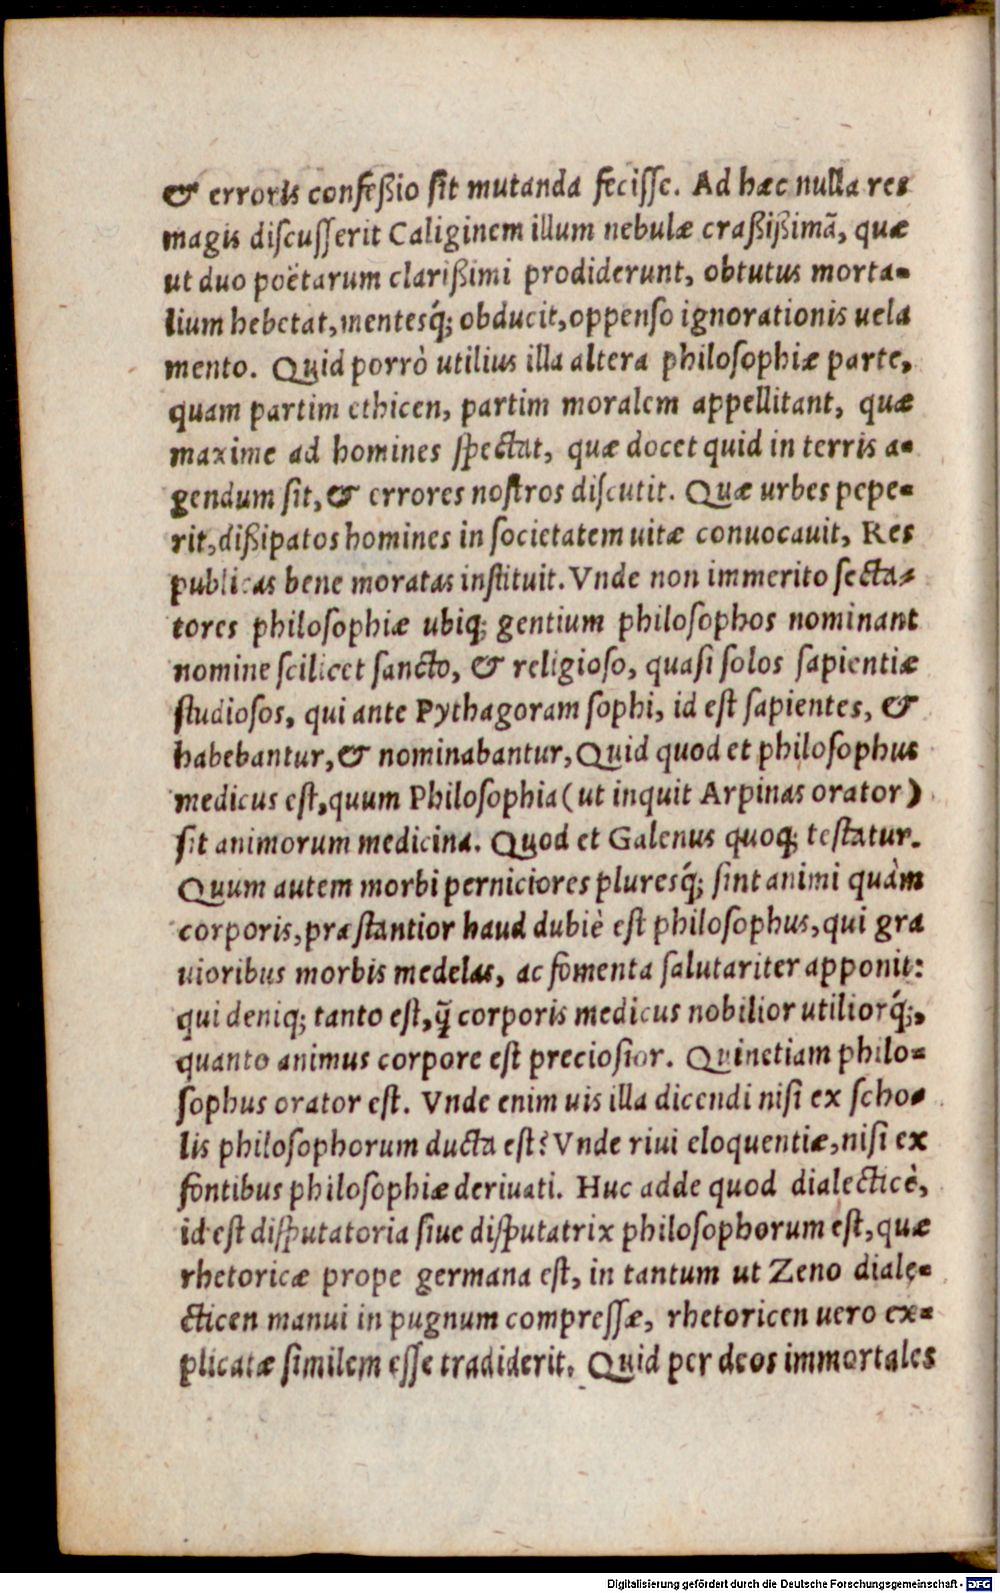 & erroris confeßio ſit mutanda feciſſe. Ad hæc nulla res
magis diſcuſſerit Caliginem illum nebulæ craßißimã, quæ
ut duo poëtarum clarißimi prodiderunt, obtutus morta-
lium hebetat, mentesq́; obducit, oppenſo ignorationis uela
mento. Quid porrò utilius illa altera philoſophiæ parte,
quam partim ethicen, partim moralem appellitant, quæ
maxime ad homines ſpectat, quæ docet quid in terris a-
gendum ſit, & errores noſtros diſcutit. Quæ urbes pepe-
rit, dißipatos homines in ſocietatem uitæ conuocauit, Res
publicas bene moratas inſtituit. Vnde non immerito ſecta-
tores philoſophiæ ubiq; gentium philoſophos nominant
nomine ſcilicet ſancto, & religioſo, quaſi ſolos ſapientiæ
ſtudioſos, qui ante Pythagoram ſophi, id eſt ſapientes, &
habebantur, & nominabantur, Quid quod et philoſophus
medicus eſt, quum Philoſophia (ut inquit Arpinas orator)
ſit animorum medicina. Quod et Galenus quoq; teſtatur.
Quum autem morbi perniciores pluresq́; ſint animi quàm
corporis, præſtantior haud dubiè eſt philoſophus, qui gra
uioribus morbis medelas, ac fomenta ſalutariter apponit:
qui deniq; tanto eſt, q̃ corporis medicus nobilior utiliorq́;,
quanto animus corpore eſt precioſior. Quinetiam philo-
ſophus orator eſt. Vnde enim uis illa dicendi niſi ex ſcho-
lis philoſophorum ducta eſt? Vnde riui eloquentiæ, niſi ex
fontibus philoſophiæ deriuati. Huc adde quod dialecticè,
id eſt diſputatoria ſiue diſputatrix philoſophorum eſt, quæ
rhetoricæ prope germana eſt, in tantum ut Zeno diale-
cticen manui in pugnum compreſſæ, rhetoricen uero ex-
plicatæ ſimilem eſſe tradiderit. Quid per deos immortales
Digitalisierung gefördert durch die Deutsche Forschungsgemeinschaft - DFG